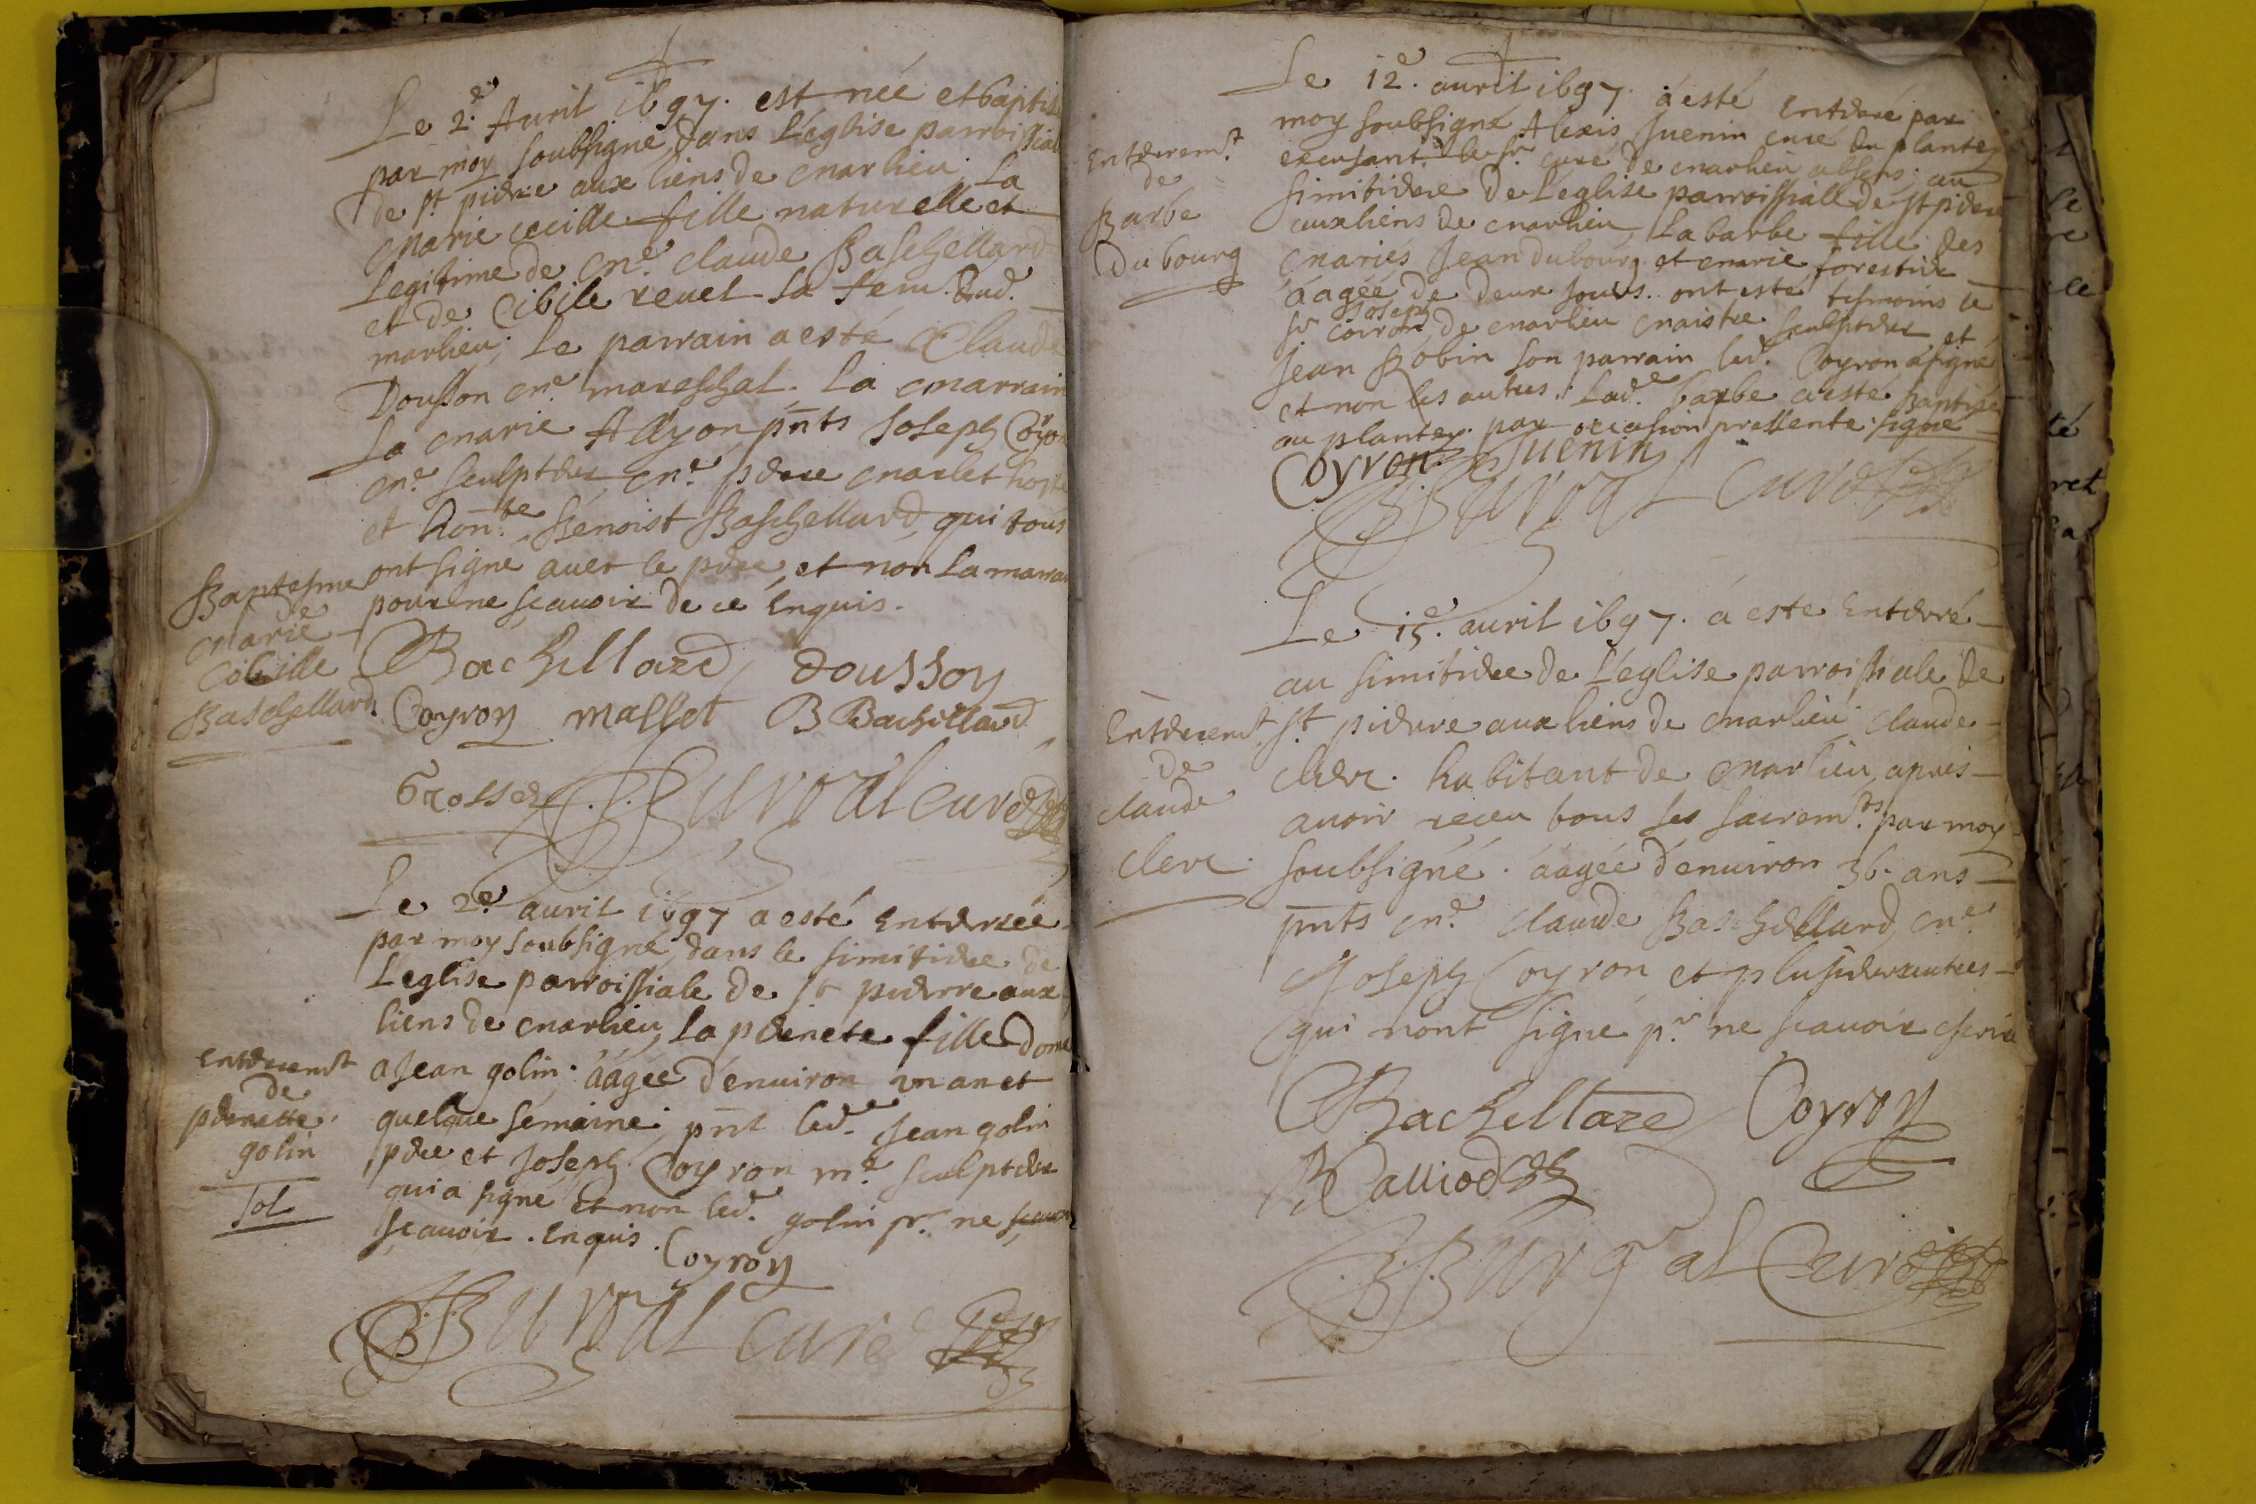 Le 2.e Auril 1697. est née et baptis
par moy soubsigné dans Léglise parroissial
de st pierre aux liens de marlieu, La
marie cecille fille naturelle et
Legitime de me. claude Baschellard
et de Cibile reuel sa fem. dud.
marlieu; Le parrain a esté Claude
Dousson me. mareschal. La marrain
La marie Allyon pnts Joseph Coyron
me. sculpteur, me. pierre marlet hoste
et hon.ble Benoist Baschellard, qui tous
ont signe auec le pere, et non La marra
pour ne scauoir de ce Enquis.
Baptesme
de
marie
Cecille
Baschellard.
Bachellard doussoy
Coyron mallet B Bachellard
Grosser B Burval curé
Le 2.e auril 1697 a esté Enterrée
par moy soubsigné, dans le simitiere de
Leglise parroissiale de st pierre aux
liens de marlieu, La pierrete fille donné
a Jean golin; áágée d'enuiron vn an et
quelque semaine; pnt led. Jean golin
pere et Joseph Coyron me. sculpteur
qui a signé et non led. golin pr. ne
scauoir. Enquis.
Enterremt
de
pierrette
golin
Sol
Coyron
B Burval curé
Le 12.e auril 1697. á esté Enterré par
moy soubsigné Alexis Juenin curé du plantey
excusant le sr. curé de marlieu absens; au
simitiere de Leglise parroissialle de st pierre
aux liens de marlieu, La barbe fille des
mariés Jean dubourg et marie forestier
áagée de deux jours. ont esté tesmoins le
sr. Joseph coiron de marlieu maistre sculpteur et
Jean Robin son parrain led. Coyron a signé
et non les autres. Lad.e barbe a esté Baptisée
au plantey. par occasion presente. signé
Enterremt.
de
Barbe
Dubourg
Coyron Juenin
B Burval Curé
Le 15.e auril 1697. a este Enterré
au simitiere de Léglise parroissiale de
st pierre aux liens de marlieu; claude
clerc. habitant de marlieu, apres
auoir receu tous ses sacremts. par moy
soubsigné. áágée d'enuiron 36. ans
pnts me. claude Baschellard, me.
Joseph Coyron et plusieurs autres
qui nont signé pr. ne scauoir escrire
Enterremt.
de
claude
clerc.
Bachellard Coyron
B Burval Curé